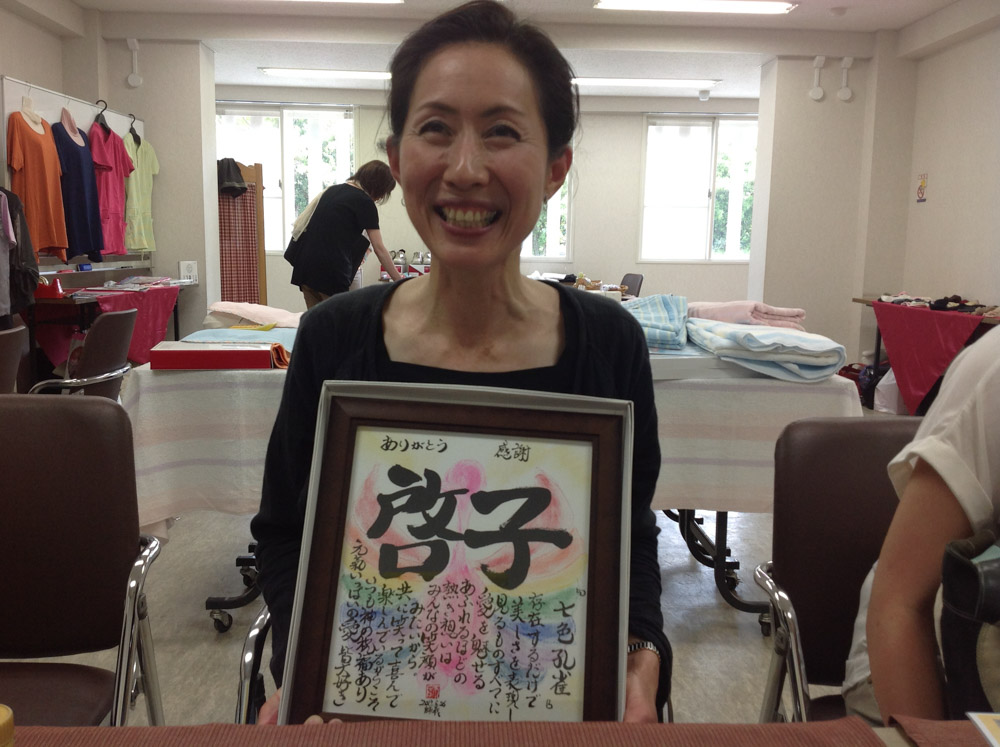 ありがとう
感謝
啓子
七色孔雀
存在するだけで
美しさを表現し
見るものすべてに
愛を魅せる
あふれるほどの
熱い想いは
みんなの笑顔が
みたいから
共に笑って喜んで
楽しんでいるからこそ
いつも神の祝福あり
元気いっぱいの愛 皆大好き